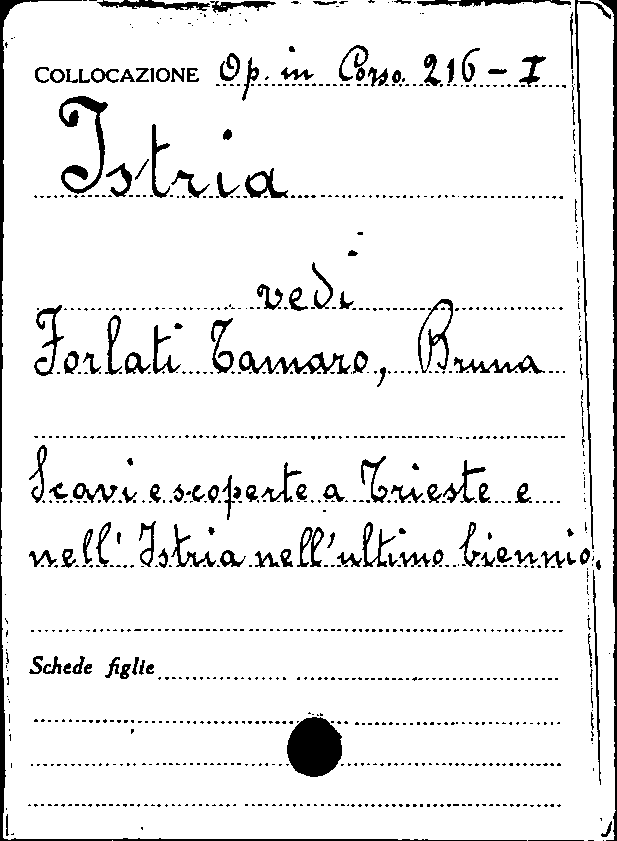 COLLOCAZIONE Op. in Corso. 216 - I
Istria
vedi
Forlati Tamaro, Bruna
Scavi e scoperte a Trieste e
nell' Istria nell'ultimo biennio.
Schede figlie